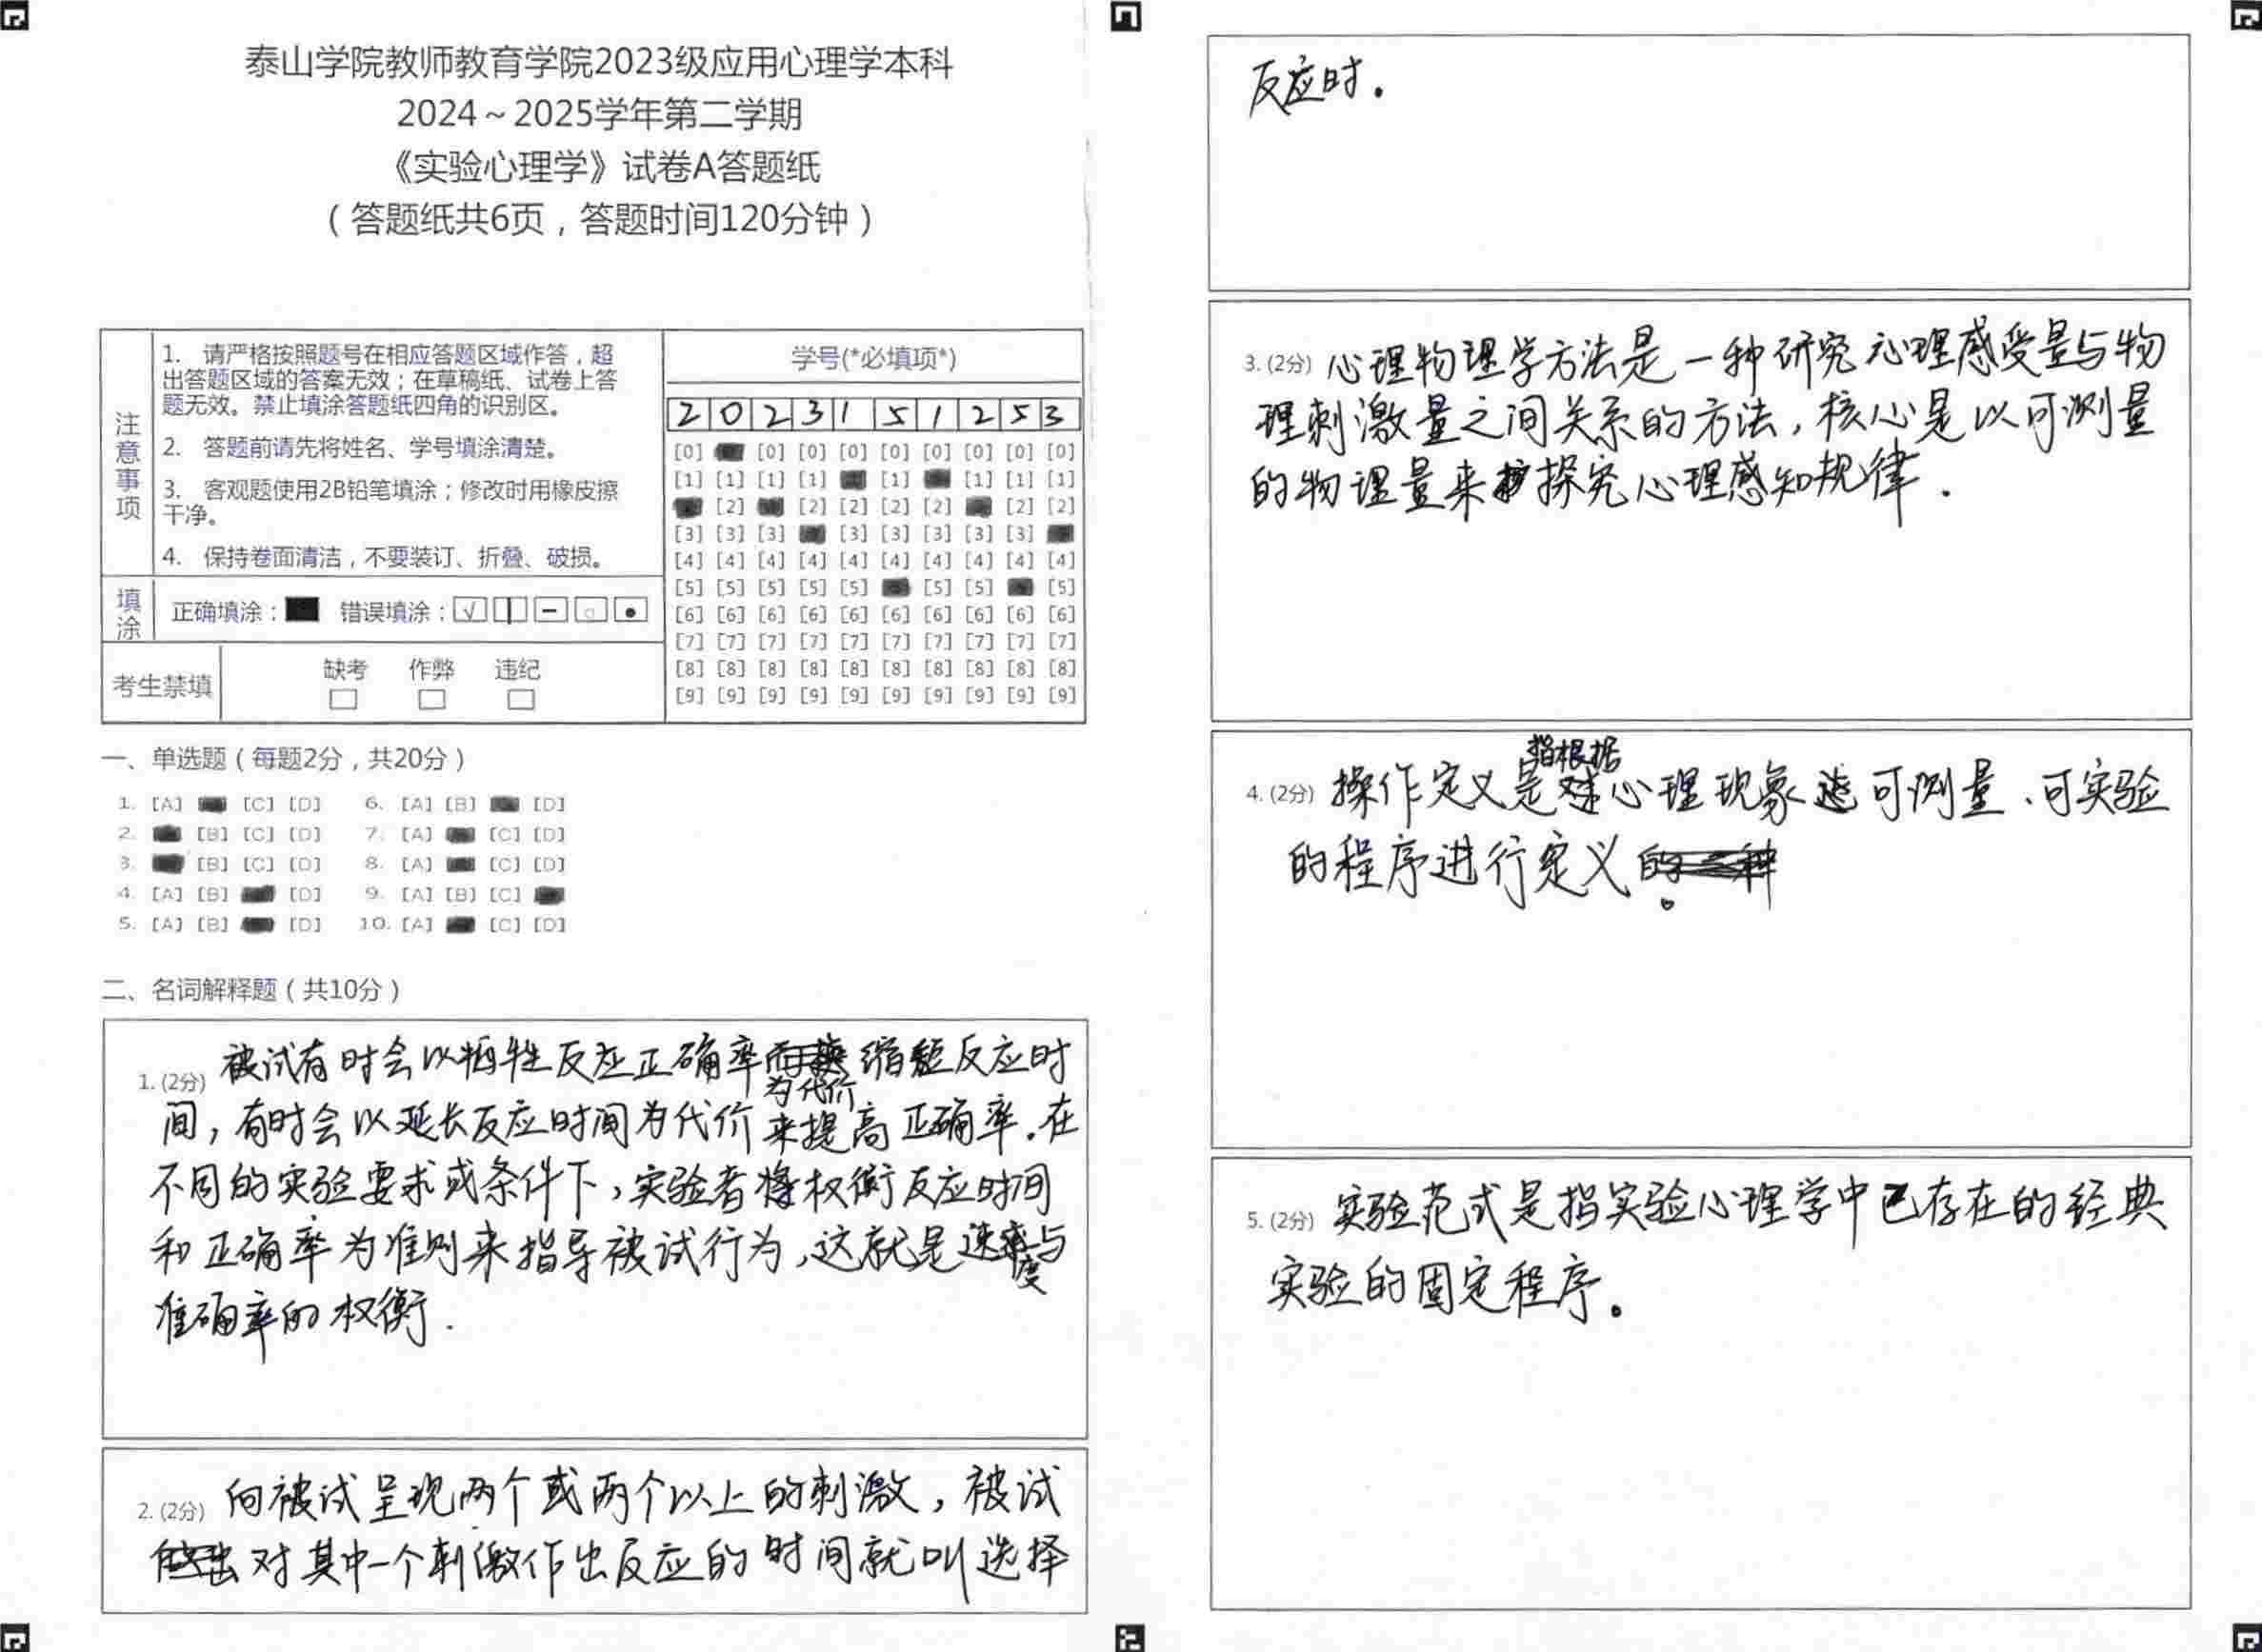 泰山学院教师教育学院2023级应用心理学本科
2024～2025学年第二学期
《实验心理学》试卷A答题纸
（答题纸共6页，答题时间120分钟）
注意事项
1. 请严格按照题号在相应答题区域作答，超
出答题区域的答案无效；在草稿纸、试卷上答
题无效。禁止填涂答题纸四角的识别区。
2. 答题前请先将姓名、学号填涂清楚。
3. 客观题使用2B铅笔填涂；修改时用橡皮擦
干净。
4. 保持卷面清洁，不要装订、折叠、破损。
填涂
正确填涂： 错误填涂：
考生禁填
缺考 作弊 违纪
学号(*必填项*)
2 0 2 3 1 5 1 2 5 3
[0] [0] [0] [0] [0] [0] [0] [0] [0]
[1] [1] [1] [1] [1] [1] [1] [1]
[2] [2] [2] [2] [2] [2] [2]
[3] [3] [3] [3] [3] [3] [3] [3]
[4] [4] [4] [4] [4] [4] [4] [4] [4] [4]
[5] [5] [5] [5] [5] [5] [5] [5]
[6] [6] [6] [6] [6] [6] [6] [6] [6] [6]
[7] [7] [7] [7] [7] [7] [7] [7] [7] [7]
[8] [8] [8] [8] [8] [8] [8] [8] [8] [8]
[9] [9] [9] [9] [9] [9] [9] [9] [9] [9]
一、单选题（每题2分，共20分）
1. [A] [C] [D] 6. [A] [B] [D]
2. [B] [C] [D] 7. [A] [C] [D]
3. [B] [C] [D] 8. [A] [C] [D]
4. [A] [B] [D] 9. [A] [B] [C]
5. [A] [B] [D] 10. [A] [C] [D]
二、名词解释题（共10分）
1. (2分) 被试有时会以牺牲反应正确率为代价缩短反应时
间，有时会以延长反应时间为代价来提高正确率.在
不同的实验要求或条件下，实验者将权衡反应时间
和正确率为准则来指导被试行为，这就是速度与
准确率的权衡.
2. (2分) 向被试呈现两个或两个以上的刺激，被试
对其中一个刺激作出反应的时间就叫选择
反应时.
3. (2分) 心理物理学方法是一种研究心理感受量与物
理刺激量之间关系的方法，核心是以可测量
的物理量来探究心理感知规律.
4. (2分) 操作定义是指根据心理现象可测量、可实验
的程序进行定义。
5. (2分) 实验范式是指实验心理学中已存在的经典
实验的固定程序。